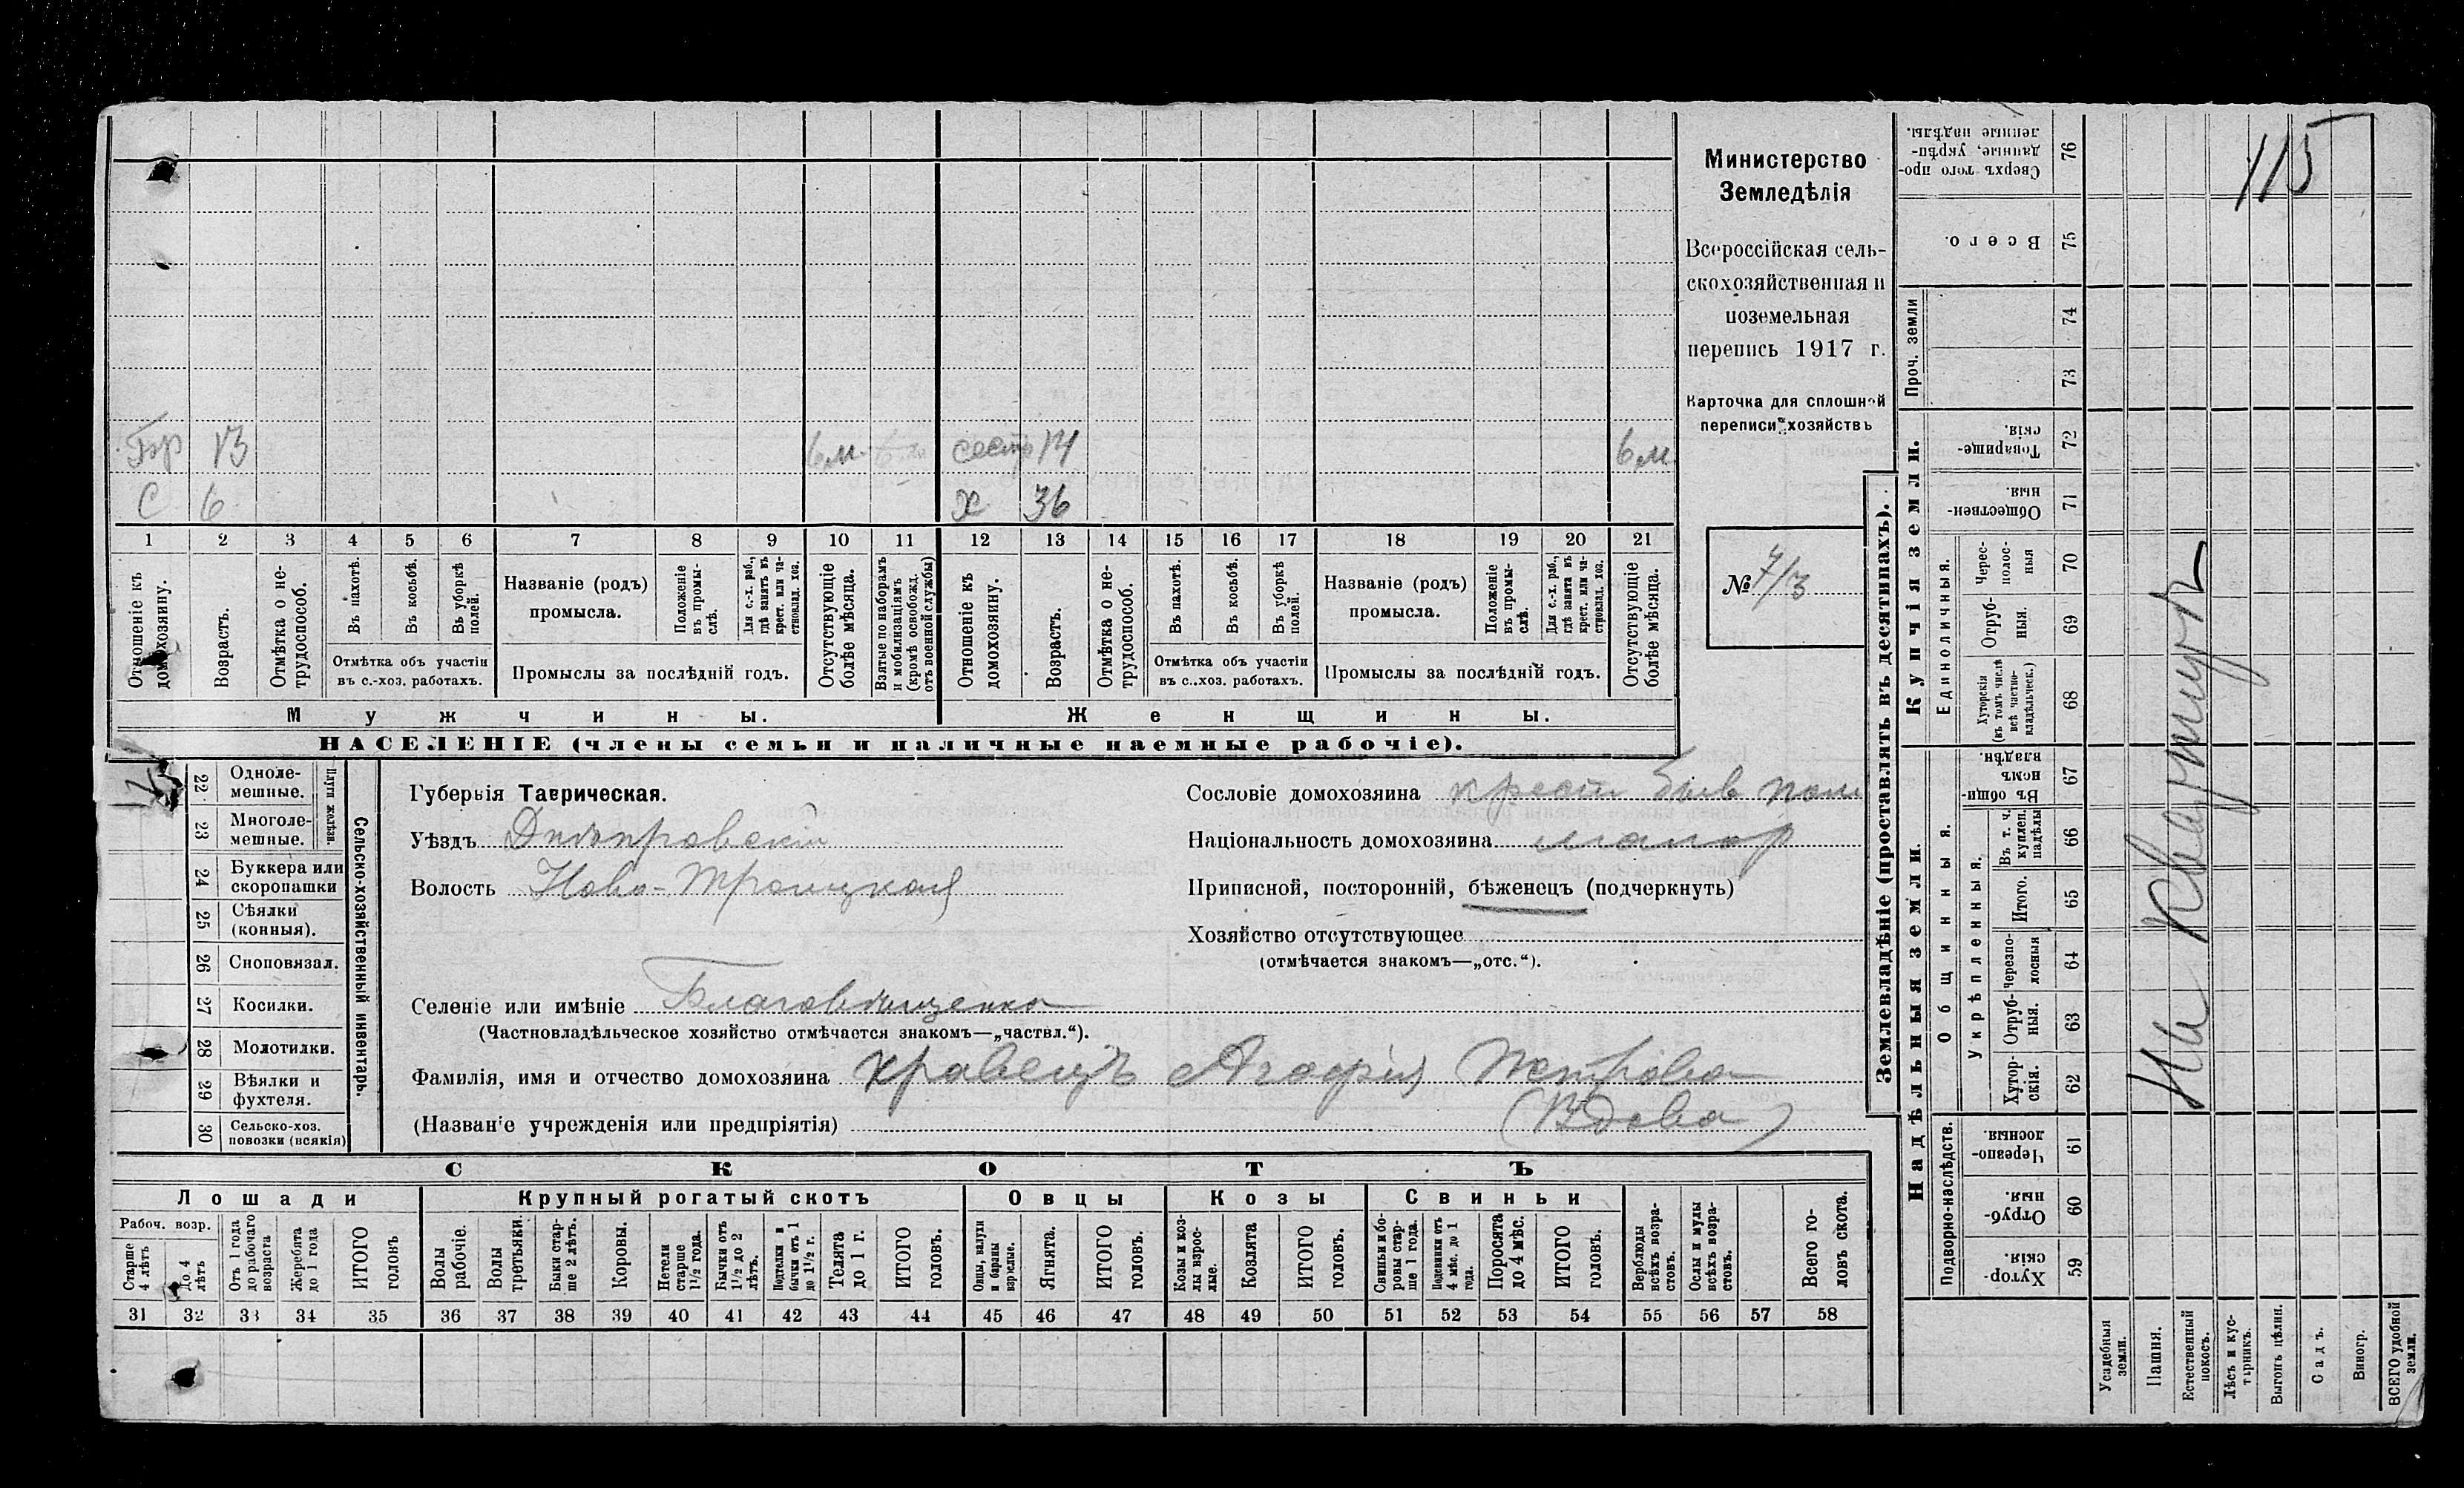 115
Бр 13 6 м. 6 м сестр 14 6 м.
С 6 Х 36
1 2 3 4 5 6 7 8 9 10 11 12 13 14 15 16 17 18 19 20 21
Отношеніе къ домохозяину.
Возрастъ.
Отмѣтка о не-
трудоспособ.
Въ пахотѣ.
Въ косьбѣ.
Въ уборкѣ
полей.
Отмѣтка объ участіи
въ с.-хоз. работахъ.
Названіе (родъ)
промысла.
Положеніе
въ промы-
слѣ.
Для с.-х. раб.,
гдѣ занятъ въ
крест. или ча-
стновлад. хоз.
Промыслы за послѣдній годъ.
Отсутствующіе
болѣе мѣсяца.
Взятые по наборамъ
и мобилизаціямъ
(кромѣ освобожд.
отъ военной службы)
Отношеніе къ
домохозяину.
Возрастъ.
Отмѣтка о не-
трудоспособ.
Въ пахотѣ.
Въ косьбѣ.
Въ уборкѣ
полей.
Отмѣтка объ участіи
въ с.-хоз. работахъ.
Названіе (родъ)
промысла.
Положеніе
въ промы-
слѣ.
Для с.-х. раб.,
гдѣ занята въ
крест. или ча-
стновлад. хоз.
Промыслы за послѣдній годъ.
Отсутствующіе
болѣе мѣсяца.
Мужчины. Женщины.
НАСЕЛЕНІЕ (члены семьи и наличные наемные рабочіе).
Министерство
Земледѣлія
Всероссійская сель-
скохозяйственная и
поземельная
перепись 1917 г.
Карточка для сплошной
переписи хозяйствъ
№ 7/3
Сельско-хозяйственный инвентарь.
Плуги желѣзн.
22 Одноле-
мешные.
23 Многоле-
мешные.
24 Буккера или
скоропашки
25 Сѣялки
(конныя).
26 Сноповязал.
27 Косилки.
28 Молотилки.
29 Вѣялки и
фухтеля.
30 Сельско-хоз.
повозки (всякія)
Губернія Таврическая.
Уѣздъ Днѣпровскій
Волость Ново-Троицкая
Сословіе домохозяина крест быв пом
Національность домохозяина малор
Приписной, посторонній, бѣженецъ (подчеркнуть)
Хозяйство отсутствующее
(отмѣчается знакомъ—„отс.“).
Селеніе или имѣніе Благовѣщенка
(Частновладѣльческое хозяйство отмѣчается знакомъ—„частвл.“).
Фамилія, имя и отчество домохозяина Кравецъ Агафія Петрова
(Названіе учрежденія или предпріятія) (Вдова)
СКОТЪ
Лошади Крупный рогатый скотъ Овцы Козы Свиньи
Рабоч. возр.
Старше
4 лѣтъ
До 4
лѣтъ
Отъ 1 года
до рабочаго
возраста
Жеребята
до 1 года
ИТОГО
головъ
Волы
рабочіе.
Волы
третьяки.
Быки стар-
ше 2 лѣтъ.
Коровы.
Нетели
старше
1½ года.
Бычки отъ
1½ до 2
лѣтъ.
Подтелки и
бычки отъ 1
до 1½ г.
Телята
до 1 г.
ИТОГО
головъ.
Овцы, валухи
и бараны
взрослые.
Ягнята.
ИТОГО
головъ.
Козы и коз-
лы взрос-
лые.
Козлята
ИТОГО
головъ.
Свиньи и бо-
ровы стар-
ше 1 года.
Подсвинки отъ
4 мѣс. до 1
года.
Поросята
до 4 мѣс.
ИТОГО
головъ.
Верблюды
всѣхъ возра-
стовъ.
Ослы и мулы
всѣхъ возра-
стовъ.
Всего го-
ловъ скота.
31 32 33 34 35 36 37 38 39 40 41 42 43 44 45 46 47 48 49 50 51 52 53 54 55 56 57 58
Землевладѣніе (проставлять въ десятинахъ).
Надѣльныя земли. Купчія земли.
Подворно-наслѣдств.
Общинныя.
Укрѣпленныя.
Единоличныя.
Проч. земли
59 Хутор-
скія.
60 Отруб-
ныя.
61 Черезпо-
лосныя.
62 Хутор-
скія.
63 Отруб-
ныя.
64 Черезпо-
лосныя
65 Итого.
66 Въ т. ч.
куплен.
надѣлы
67 Въ общин-
номъ
владѣн.
68 Хуторскія
(въ томъ числѣ
всѣ частно-
владѣльческ.)
69 Отруб-
ныя.
70 Черес-
полос-
ныя
71 Обществен-
ныя.
72 Товарище-
скія.
73
74
75 Всего.
76 Сверхъ того про-
данные, укрѣп-
ленные надѣлы.
Усадебныя
земли.
Пашня.
Естественный
покосъ.
Лѣсъ и кус-
тарникъ.
Выгонъ цѣлин.
Садъ.
Виногр.
ВСЕГО удобной
земли.
На квартирѣ